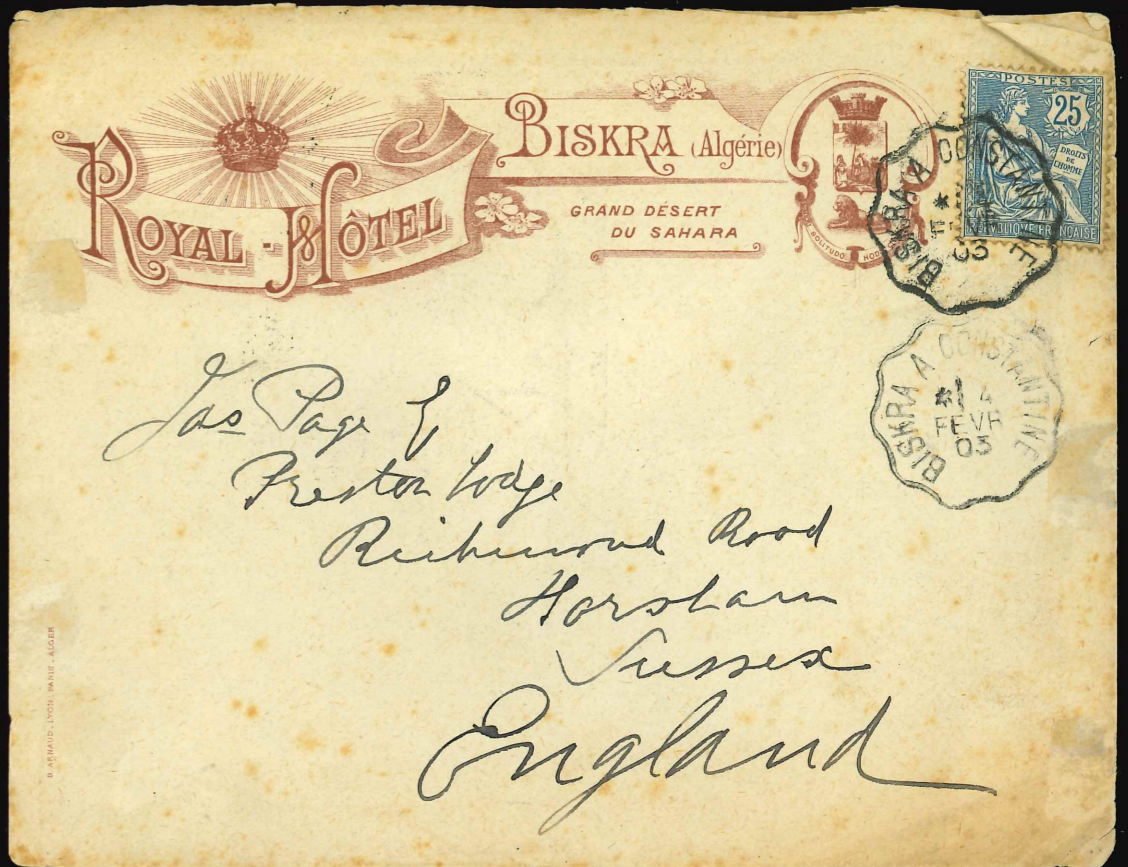 ROYAL-HÔTEL
BISKRA (Algérie)
GRAND DÉSERT
DU SAHARA
SOLITUDO HOD
POSTES
25
DROITS
DE
L'HOMME
REPUBLIQUE FRANÇAISE
BISKRA A CONSTANTINE
FEVR
03
BISKRA A CONSTANTINE
*14
FEVR
03
Jas Page E
Preston Lodge
Richmond Road
Horsham
Sussex
England
B. ARNAUD, LYON, PARIS - ALGER